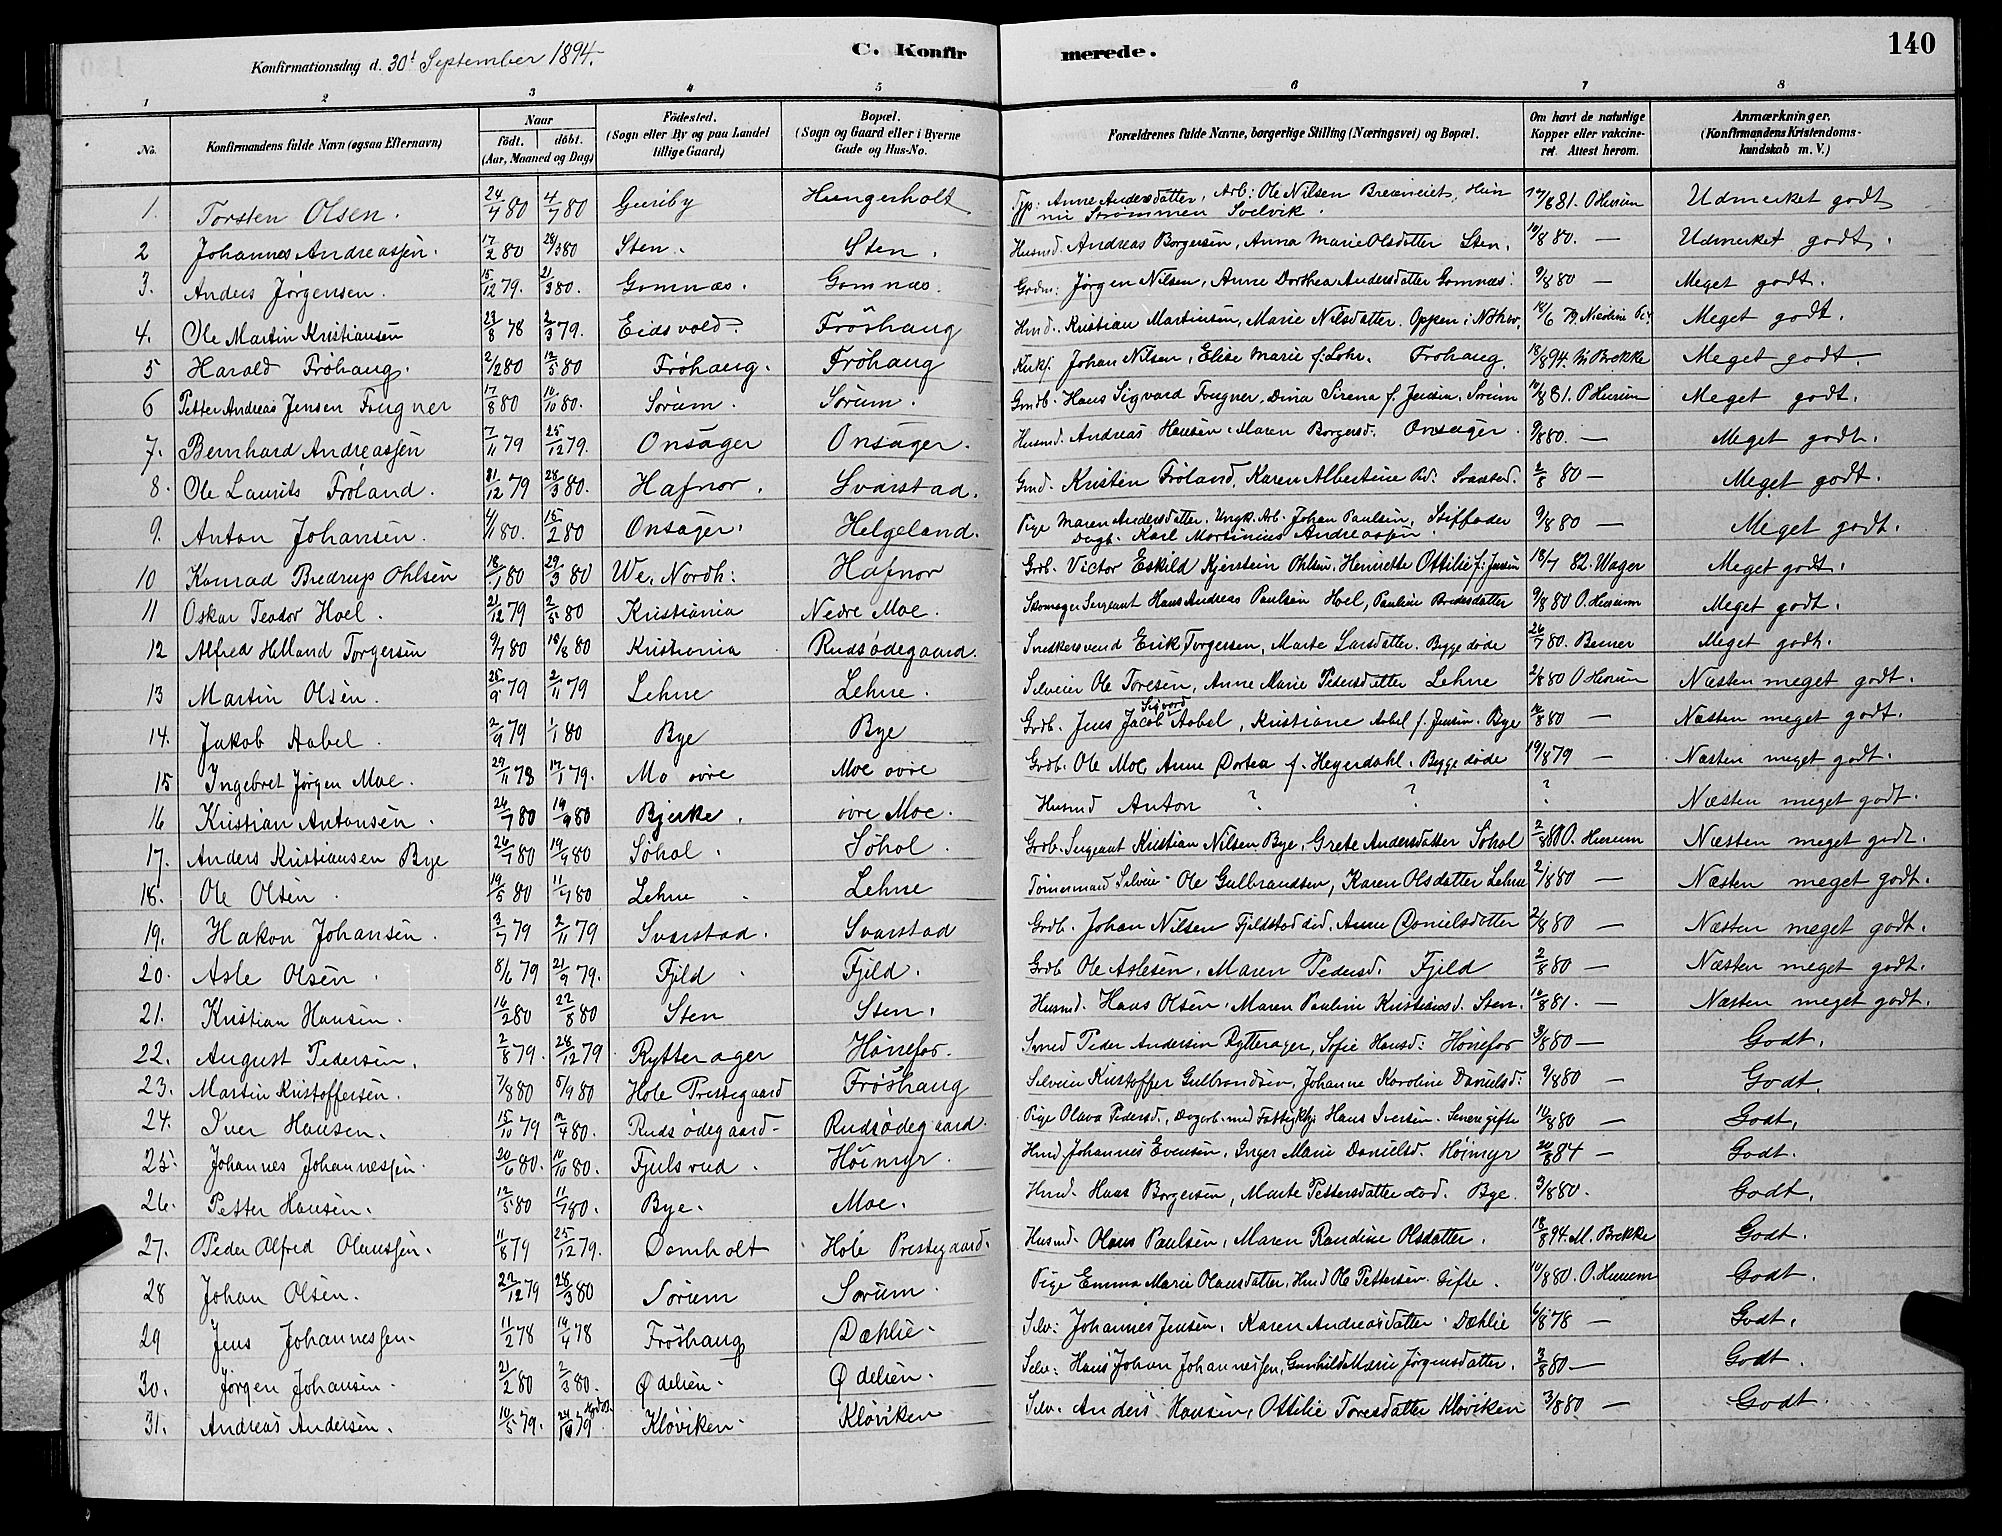 140
C. Konfirmerede.
Konfirmationsdag d. 30' September 1894.
1 2 3 4 5 6 7 8
No. Konfirmandens fulde Navn (ogsaa Efternavn) Naar født. døbt. (Aar, Maaned og Dag) Fødested. (Sogn eller By og paa Landet tillige Gaard) Bopæl. (Sogn og Gaard eller i Byerne Gade og Hus-No. Forældrenes fulde Navne, borgerlige Stilling (Næringsvei) og Bopæl. Om havt de naturlige Kopper eller vakcineret. Attest herom. Anmærkninger. (Konfirmandens Kristendomskundskab m. V.)
1. Torsten Olsen. 24/4 80 4/7 80 Guriby Hungerholt Anne Andersdatter, Arb: Ole Nilsen Hun
nu Strømmen Svelvik. 81. Udmerket godt
2 Johannes Andreassen. 17/2 80 28/3 80 Sten. Sten. Husmd. Andreas Borgersen, Anna Marie Olsdatter Sten. 10/8 80. — Udmerket godt.
3. Anders Jørgensen. 15/12 79. 21/3 80. Gomnæs. Gomnæs. Jørgen Nilsen, Anne Dorthea Andersdatter Gomnæs. 9/8 80 — Meget godt.
4. Ole Martin Kristiansen 23/8 78 2/3 79. Eidsvold. Frøshaug Hmd. Kristian Martinsen, Marie Nilsdatter. Oppen i Meget godt.
5 Harald Frøhaug. 2/2 80 12/5 80 Frøhaug. Frøhaug Kirks. Johan Nilsen, Elise Marie f. Lohr. Frøhaug. 18/8 94. M Brekke Meget godt
6 Petter Andreas Jensen Fougner 17/8 80 10/10 80. Sørum. Sørum. Gmdb. Hans Sigvard Fougner, Dina Sirena f. Jensen, Sørum 10/8 81. Meget godt.
7. Bernhard Andreassen 7/11 79 25/12 79. Onsager Onsager. Husmd. Andreas Hansen, Maren Borgersd. Onsager. 9/8 80. — Meget godt.
8. Ole Laurits Frøland. 31/12 79 28/3 80. Hafnor. Svarstad. Gmd. Kristen Frøland, Karen Albertine Svarstad. 2/8 80 — Meget godt.
9. Anton Johansen. 4/1 80. 15/2 80 Onsager. Helgeland. Pige Maren Andersdatter. Ungk. Arb. Johan Paulsen. Stiffader
Dagb. Karl Martinius Andreassen. 9/8 80 — Meget godt.
10 Konrad Bredrup Ohlsen 18/1 80 29/3 80 We, Nordh: Hafnor Grdb. Victor Eskild Kjerstein Ohlsen, Henriette Ottilie f. Jensen 18/7 82. Wager Meget godt.
11 Oskar Teodor Hoel. 21/12 79 2/5 80 Kristiania Nedre Moe. Skomager Sergeant Hans Andreas Paulsen Hoel, Pauline 9/8 80 Meget godt.
12 Alfred Helland Torgersen 9/7 80 15/8 80 Kristiania Rudsødegaard. Snekkersvend Erik Torgersen, Marte Larsdatter. Begge døde 26/7 80. Meget godt.
13 Martin Olsen. 25/9 79 2/11 79 Lehne Lehne. Selveier Ole Toresen, Anne Marie Pedersdatter Lehne 2/8 80 Næsten meget godt.
14. Jakob Aabel. 2/9 79 1/1 80 Bye Bye Grdb. Jens Jacob Sigvard Aabel, Kristiane Aabel f. Jensen. Bye 10/8 80 — Næsten meget godt.
15 Ingebret Jørgen Moe. 29/11 78 17/1 79. Mo øvre Moe øvre Grdb. Ole Moe, Anne Dortea f. Heyerdahl. Begge døde 19/8 79 — Næsten meget godt.
16 Kristian Antonsen. 24/7 80 19/9 80 Bjerke. øvre Moe. Husmd Anton ? ? ? Næsten meget godt.
17. Anders Kristiansen Bye 26/7 80 19/9 80 Søhol. Søhol. Grdb. Sergeant Kristian Nilsen Bye, Grete Andersdatter Søhol 2/8 80 Næsten meget godt.
18. Ole Olsen. 19/5 80 11/7 80 Lehne. Lehne Tømermand Selveier Ole Gulbrandsen, Karen Olsdatter Lehne 2/8 80 — Næsten meget godt.
19. Hakon Johansen. 3/7 79 2/11 79 Svarstad. Svarstad Grdb. Johan Nilsen Fjeldstad død. Anne Danielsdatter 2/8 80 — Næsten meget godt.
20. Asle Olsen. 8/6 79 21/9 79. Fjeld. Fjeld. Grdb Ole Aslesen. Maren Pedersd. Fjeld 2/8 80 — Næsten meget godt.
21. Kristian Hansen. 16/2 80 22/8 80 Sten Sten. Husmd. Hans Olsen. Maren Pauline Kristiansd. Sten. 10/8 81. — Næsten meget godt.
22. August Pedersen. 2/8 79. 28/12 79 Rytterager Hønefos. Smed Peder Andersen Rytterager, Sofie Hansd: Hønefos 3/8 80 — Godt.
23. Martin Kristoffersen. 7/8 80 5/9 80 Hole Prestegaard Frøshaug Selveier Kristoffer Gulbrandsen, Johanne Karoline Danielsd: 9/8 80 — Godt.
24. Iver Hansen. 15/10 79 12/4 80. Rudsødegaard. Rudsødegaard. Pige Olava Pedersd., Dagarb. med Fattigkj. Hans Iversen. Senere gifte 10/8 80 — Godt.
25. Johannes Johannessen. 20/6 80. 10/10 80. Fjulsrud. Høimyr. Hmd. Johannes Evensen, Inger Marie Danielsd. Høimyr 20/8 84 — Godt.
26. Petter Hansen. 12/5 80 11/7 80. Bye. Moe. Hmd. Hans Borgersen, Marte Pettersdatter død. Bye. 3/8 80. Godt.
27. Peder Alfred Olaussen. 11/8 79 25/12 79. Domholt Hole Prestegaard. Husmd. Olaus Paulsen, Maren Randine Olsdatter. 18/8 94. M. Brekke Godt.
28 Johan Olsen. 22/12 79 28/3 80 Sørum Sørum. Pige Emma Marie Olausdatter. Hmd Ole Pettersen. Gifte. 10/8 80. Godt.
29 Jens Johannessen. 11/2 78 14/4 78 Frøshaug Dæhlie. Selv: Johannes Jensen, Karen Andreasdatter. Dæhlie 6/8 78 — Godt.
30. Jørgen Johansen. 21/2 80 2/3 80. Ødelien. Ødelien. Selv: Hans Johan Johannessen, Gunhilda Marie Jørgensdatter. 3/8 80 — Godt.
31. Andreas Andersen. 10/5 79. 79 Kløviken. Kløviken Selv. Anders Hansen, Ottilie Toresdatter Kløviken 3/8 80 — Godt.